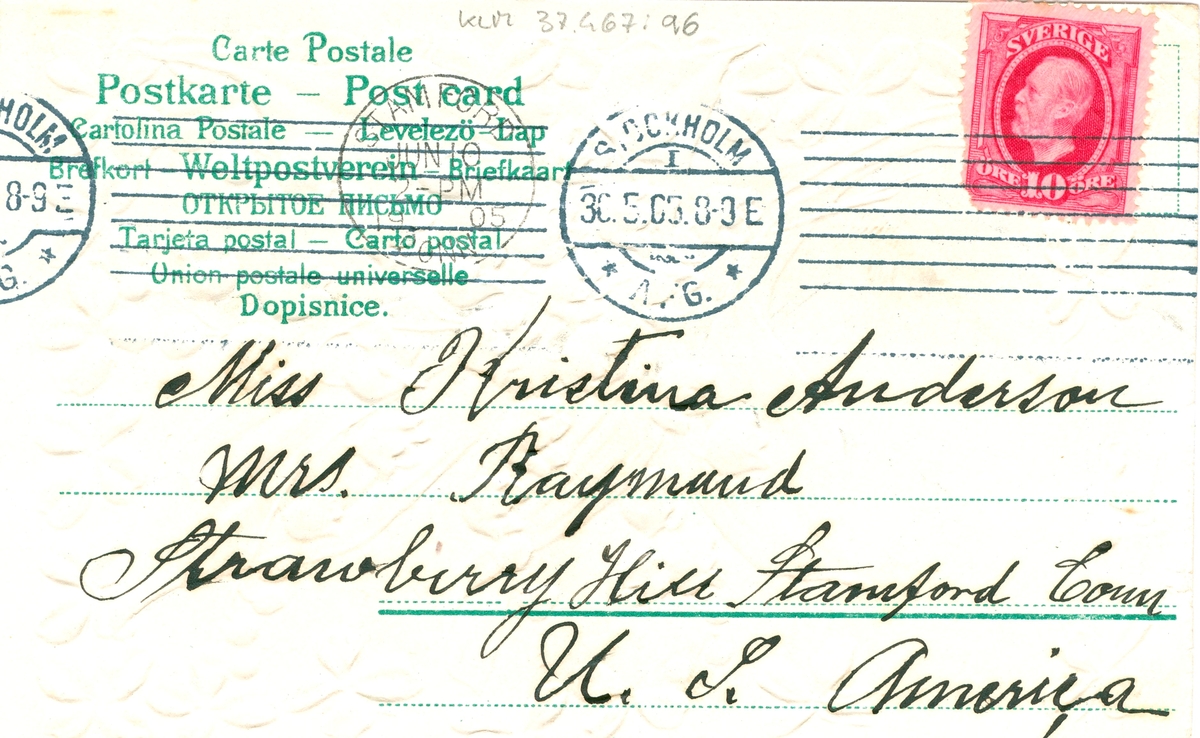 KLM 37.467:96
Carte Postale
Postkarte — Post card
Cartolina Postale — Levelezö-Lap
Brefkort — Weltpostverein — Briefkaart
ОТКРЫТОЕ ПИСЬМО
Tarjeta postal — Carto postal
Union postale universelle
Dopisnice.
HOLM
8-9 E
G.
STAMFORD
JUN 10
2-PM
05
CONN
STOCKHOLM
1
30.5.05.8-9 E
A. G.
SVERIGE
ÖRE 10 ÖRE
Miss Kristina Anderson
Mrs. Raymand
Strawberry Hill Stamford Conn
U. S. America